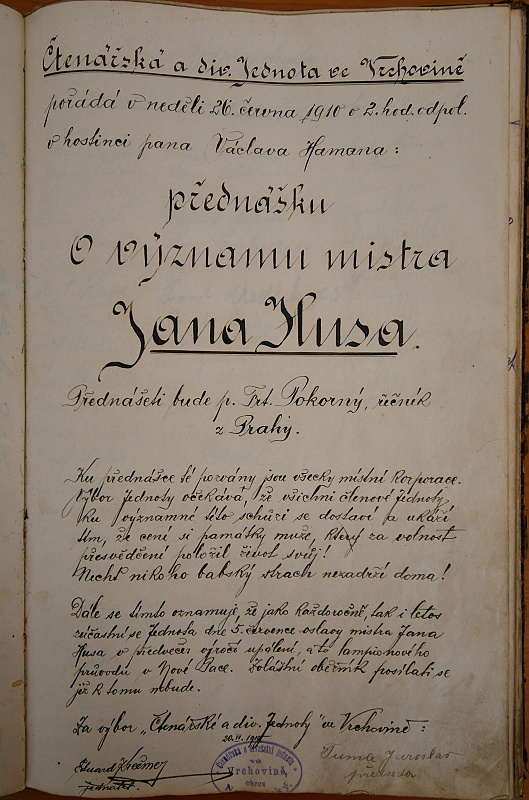 Čtenářská a div. Jednota ve Vrchovině
pořádá v neděli 26. června 1910 o 2. hod. odpol.
v hostinci pana Václava Hamana:
přednášku
O významu mistra
Jana Husa.
Přednášeti bude p. Frt. Pokorný, řečník
z Prahy.
Ku přednášce té pozvány jsou všecky místní korporace.
Výbor Jednoty očekává, že všichni členové Jednoty
ku významné této schůzi se dostaví a ukáží
tím, že cení si památky muže, který za volnost
přesvědčení položil život svůj!
Nechť nikoho babský strach nezadrží doma!
Dále se tímto oznamuje, že jako každoročně, tak i letos
zúčastní se Jednota dne 5. července oslavy mistra Jana
Husa v předvečer výročí upálení, a to lampionového
průvodu v Nové Pace. Zvláštní oběžník posílati se
již k tomu nebude.
Za výbor „Čtenářské a div. Jednoty" ve Vrchovině:
Eduard
jednatel.
Čtenářská a divadelní jednota
ve
Vrchovině,
okres
Tuma Jaroslav
předseda